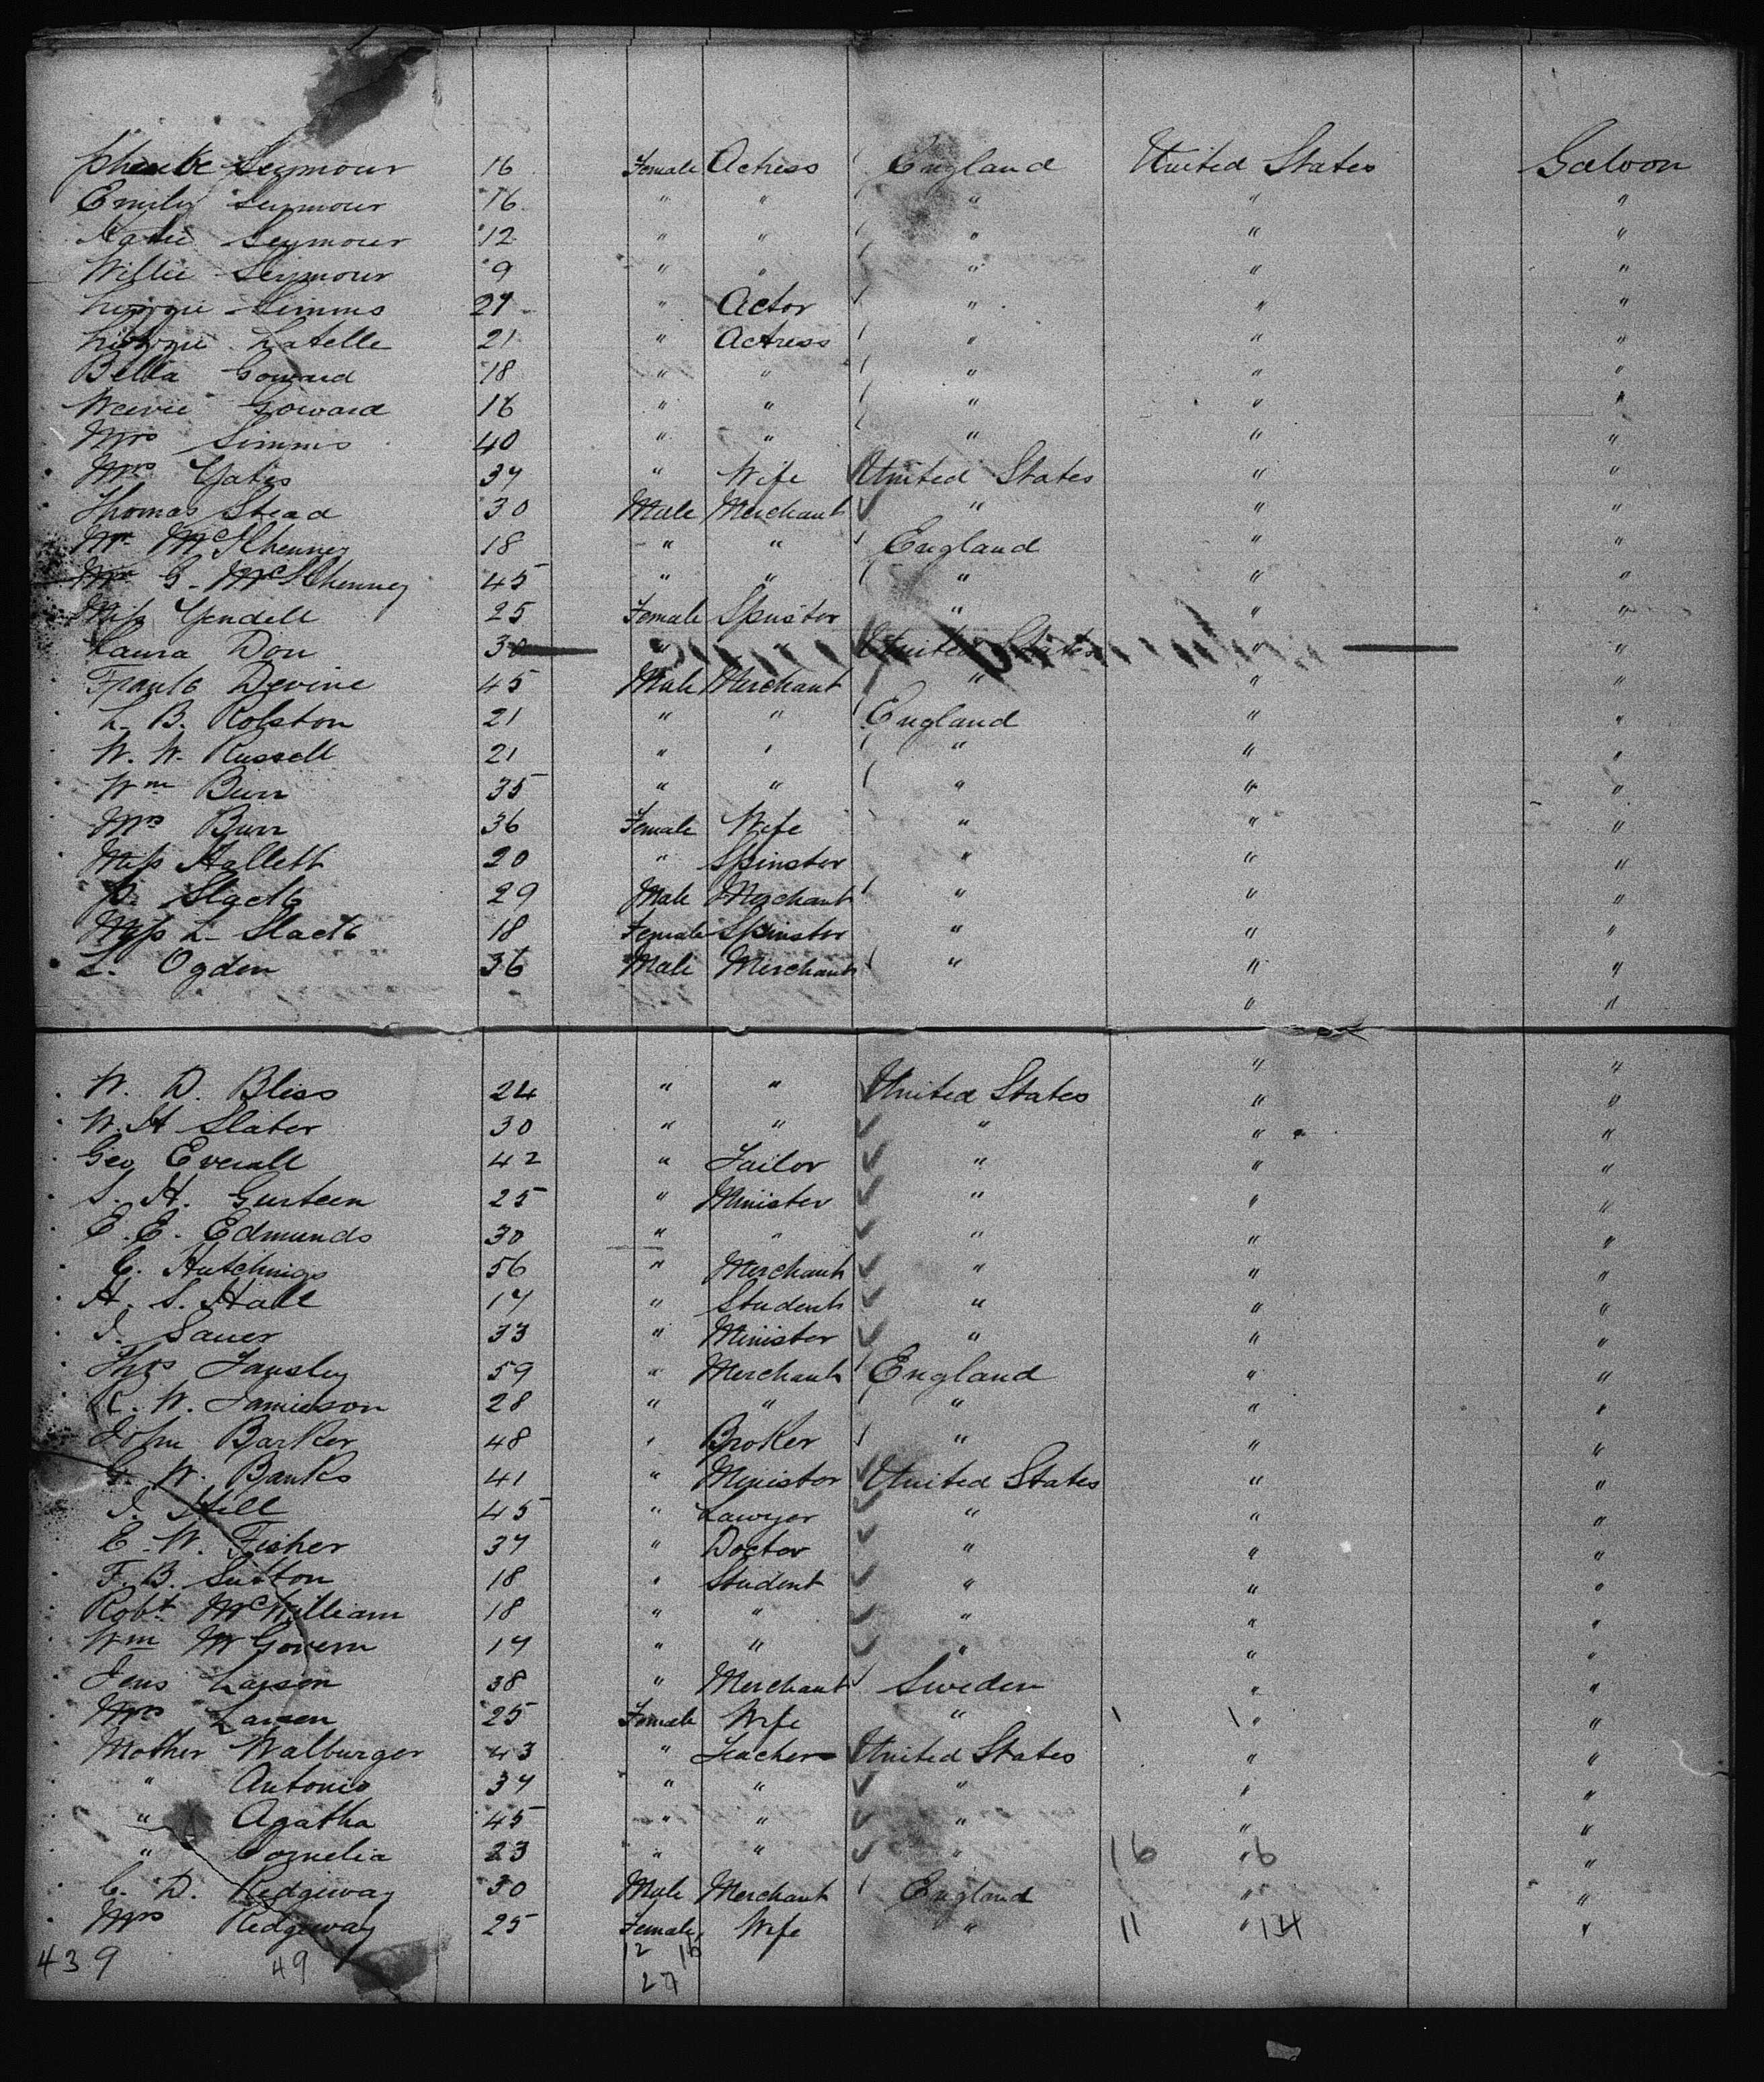 Pheobe Seymour 16 Female Actress England United States Saloon
Emily Seymour 16 " " " " "
Katie Seymour 12 " " " " "
Willie Seymour 9 " " " " "
Simms 27 " Actor " " "
Latelle 21 " Actress " " "
Bella Goward 18 " " " " "
Goward 16 " " " " "
Mrs Simms 40 " " " " "
Mrs Yates 37 " Wife United States " "
Thomas Stead 30 Male Merchant " " "
Mr 18 " " England " "
45 " " " " "
Miss Yendell 25 Female Spinster " " "
Laura Don 30 " United States " "
Frank Devine 45 Male Merchant " " "
L. B. Rolston 21 " " England " "
W. W. Russell 21 " " " " "
Wm Burr 35 " " " " "
Mrs Burr 36 Female Wife " " "
Miss Hallett 20 " Spinster " " "
Slack 29 Male Merchant " " "
Miss L. Slack 18 Female Spinster " " "
L. Ogden 36 Male Merchant " " "
" "
" "
W. D. Bliss 24 " " United States " "
W. H Slater 30 " " " " "
Geo Everall 42 " Tailor " " "
S. H. Gurteen 25 " Minister " " "
E. E. Edmunds 30 " " " " "
C. Hutchings 56 " Merchant " " "
H. S. Hall 17 " Student " " "
J. Sauer 33 " Minister " " "
Thos Tansley 59 " Merchant England " "
R. W. Jamieson 28 " " " " "
John Barker 48 " Broker " " "
G. W. Banks 41 " Minister United States " "
J. Hill 45 " Lawyer " " "
E. W. Fisher 37 " Doctor " " "
F. B. Sutton 18 " Student " " "
Robt McWilliam 18 " " " " "
Wm McGovern 17 " " " " "
Jens Larsen 38 " Merchant Sweden " "
Mrs Larsen 25 Female Wife " " "
Mother Walburger 43 " Teacher United States " "
" Antonio 37 " " " " "
" Agatha 45 " " " " "
" Cornelia 23 " " " 16 " 6 "
C. D. Ridgeway 30 Male Merchant England " "
Mrs Ridgeway 25 Female Wife " 11 " 14 "
439 49 12 15
27